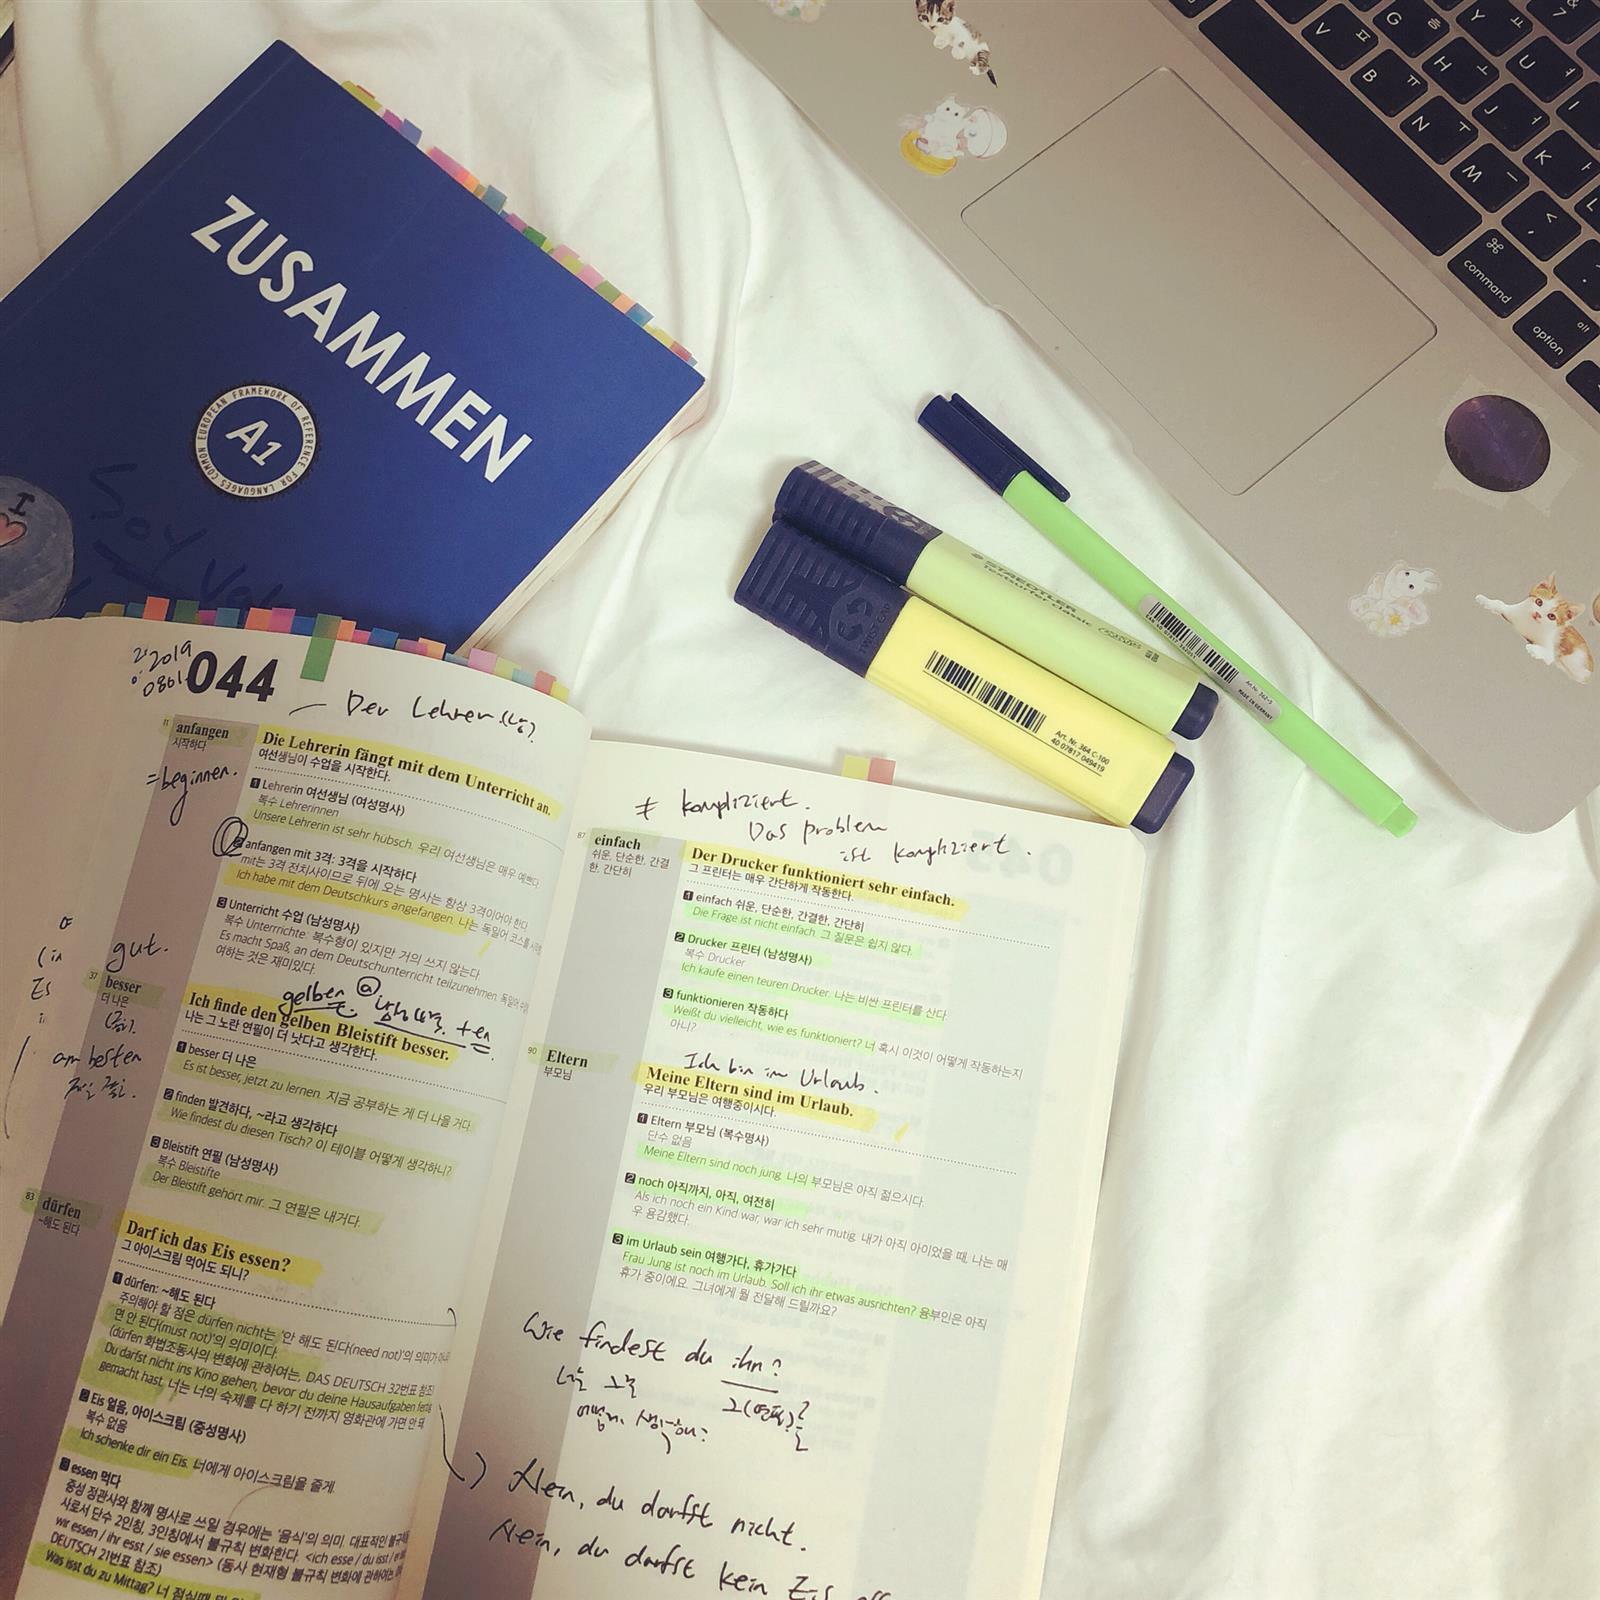 ZUSAMMEN
COMMON EUROPEAN FRAMEWORK OF REFERENCE FOR LANGUAGES
A1
I
Soy
2019
0801
044
Der Lehrer
11
anfangen
시작하다
=beginnen.
Die Lehrerin fängt mit dem Unterricht an.
여선생님이 수업을 시작한다.
1 Lehrerin 여선생님 (여성명사)
복수 Lehrerinnen
Unsere Lehrerin ist sehr hübsch. 우리 여선생님은 매우 예쁘다.
2 anfangen mit 3격: 3격을 시작하다
mit는 3격 전치사이므로 뒤에 오는 명사는 항상 3격이어야 한다.
Ich habe mit dem Deutschkurs angefangen. 나는 독일어 코스를
3 Unterricht 수업 (남성명사)
복수 Unterrichte. 복수형이 있지만 거의 쓰지 않는다.
Es macht Spaß, an dem Deutschunterricht teilzunehmen. 독일어
여하는 것은 재미있다.
gut.
37
besser
더 나은
am besten
제일
gelben
+en
Ich finde den gelben Bleistift besser.
나는 그 노란 연필이 더 낫다고 생각한다.
1 besser 더 나은
Es ist besser, jetzt zu lernen. 지금 공부하는 게 더 나을 거다.
2 finden 발견하다, ~라고 생각하다
Wie findest du diesen Tisch? 이 테이블 어떻게 생각하니?
3 Bleistift 연필 (남성명사)
복수 Bleistifte
Der Bleistift gehört mir. 그 연필은 내거다.
83
dürfen
~해도 된다
Darf ich das Eis essen?
그 아이스크림 먹어도 되니?
1 dürfen: ~해도 된다
주의해야 할 점은 dürfen nicht는 '안 해도 된다(need not)'의 의미가
면 안 된다(must not)'의 의미이다.
(dürfen 화법조동사의 변화에 관하여는, DAS DEUTSCH 32번표 참조)
Du darfst nicht ins Kino gehen, bevor du deine Hausaufgaben fertig
gemacht hast. 너는 너의 숙제를 다 하기 전까지 영화관에 가면 안
2 Eis 얼음, 아이스크림 (중성명사)
복수 없음
Ich schenke dir ein Eis. 너에게 아이스크림을 줄게.
3 essen 먹다
중성 정관사와 함께 명사로 쓰일 경우에는 '음식'의 의미. 대표적인
사로서 단수 2인칭, 3인칭에서 불규칙 변화한다. <ich esse / du isst / er
wir essen / ihr esst / sie essen> (동사 현재형 불규칙 변화에 관하여는,
DEUTSCH 21번표 참조)
Was isst du zu Mittag? 너 점심때
≠ kompliziert.
Das Problem
ist kompliziert.
87
einfach
쉬운, 단순한, 간결
한, 간단히
Der Drucker funktioniert sehr einfach.
그 프린터는 매우 간단하게 작동한다.
1 einfach 쉬운, 단순한, 간결한, 간단히
Die Frage ist nicht einfach. 그 질문은 쉽지 않다.
2 Drucker 프린터 (남성명사)
복수 Drucker
Ich kaufe einen teuren Drucker. 나는 비싼 프린터를 산다.
3 funktionieren 작동하다
Weißt du vielleicht, wie es funktioniert? 너 혹시 이것이 어떻게 작동하는지
아니?
90
Eltern
부모님
Ich bin im Urlaub.
Meine Eltern sind im Urlaub.
우리 부모님은 여행중이시다.
1 Eltern 부모님 (복수명사)
단수 없음
Meine Eltern sind noch jung. 나의 부모님은 아직 젊으시다.
2 noch 아직까지, 아직, 여전히
Als ich noch ein Kind war, war ich sehr mutig. 내가 아직 아이었을 때, 나는 매
우 용감했다.
3 im Urlaub sein 여행가다, 휴가가다
Frau Jung ist noch im Urlaub. Soll ich ihr etwas ausrichten? 융부인은 아직
휴가 중이에요. 그녀에게 뭘 전달해 드릴까요?
Wie findest du ihn?
너는 그를
어떻게 생각해?
Nein, du darfst nicht.
Nein, du darfst kein Eis
STAEDTLER
Textsurfer classic
Art. Nr. 364 C-100
40 07817 049419
MADE IN GERMANY
V ㅍ
G ㅎ
Y ㅛ
7 &
B ㅠ
H ㅗ
U ㅕ
N ㅜ
J ㅓ
I
M ㅡ
K ㅏ
< ,
L
⌘
command
alt
option